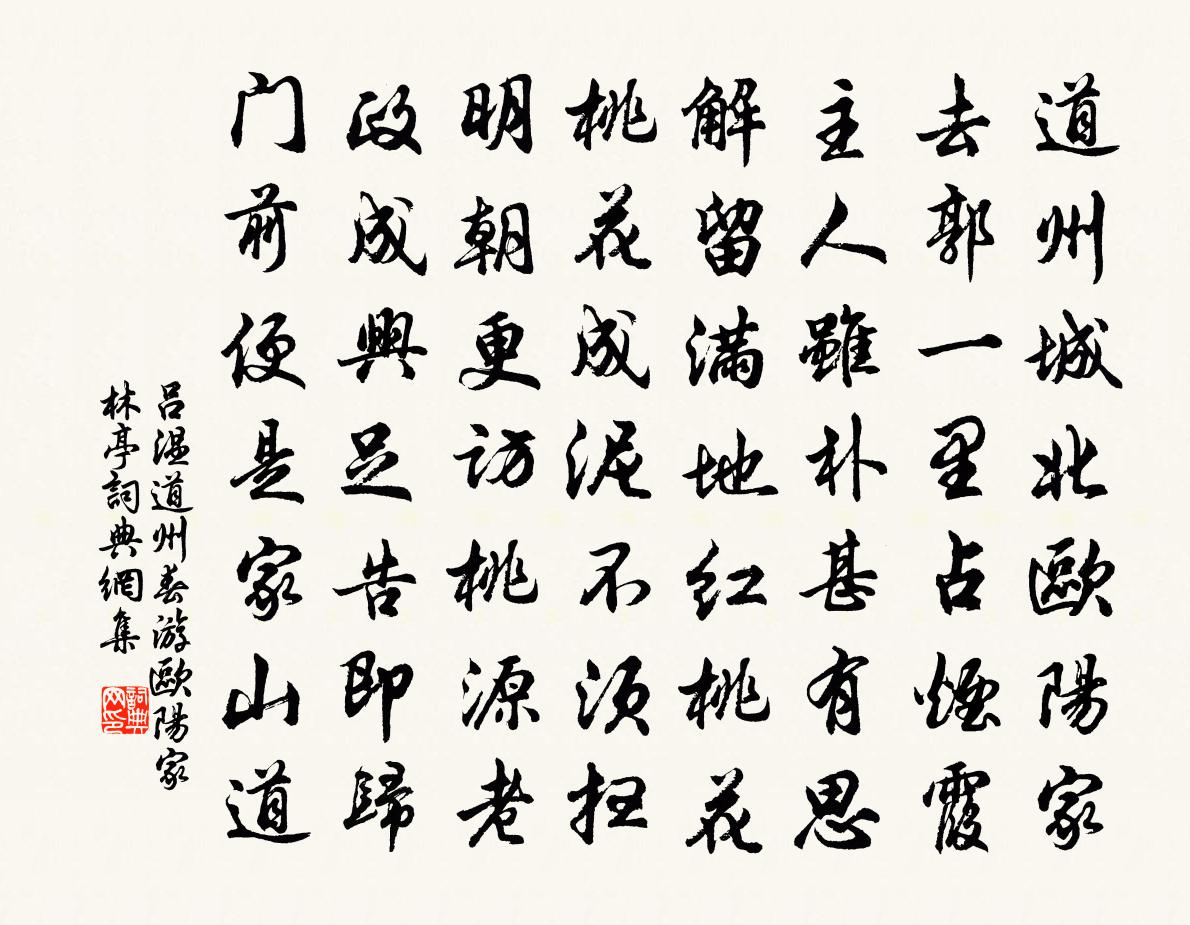 道州城北歐陽家
去郭一里占煙霞
主人雖朴甚有思
解留滿地红桃花
桃花成泥不须扫
明朝更访桃源老
政成興足告即歸
门前便是家山道
吕温道州春游歐陽家
林亭詞典網集
詞典网印